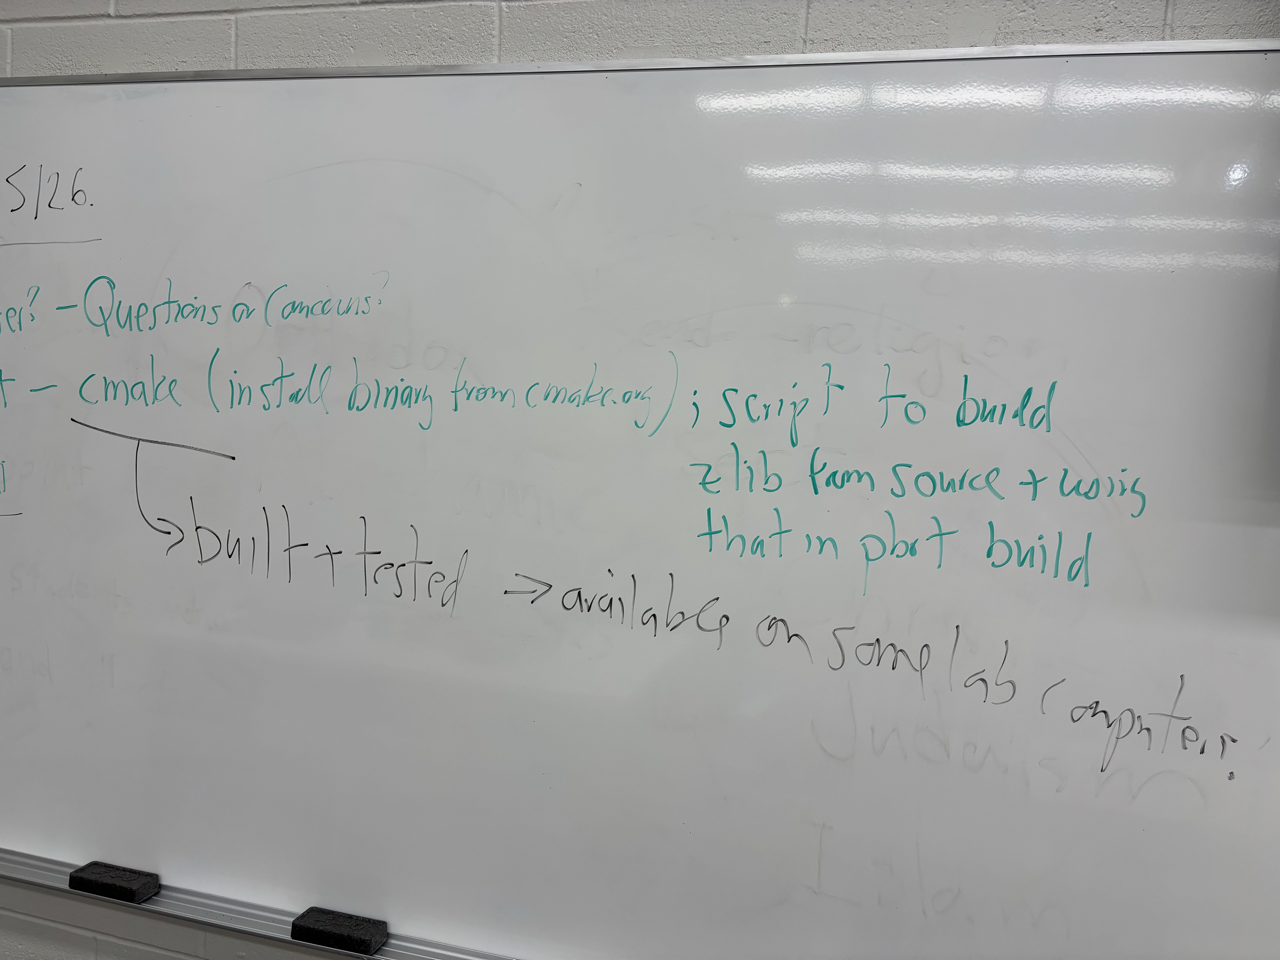 5/26.
er? - Questions or Concerns?
t - cmake (install binary from cmake.org) ; script to build
zlib from source + using
that in pbrt build
built + tested => available on some lab computers.